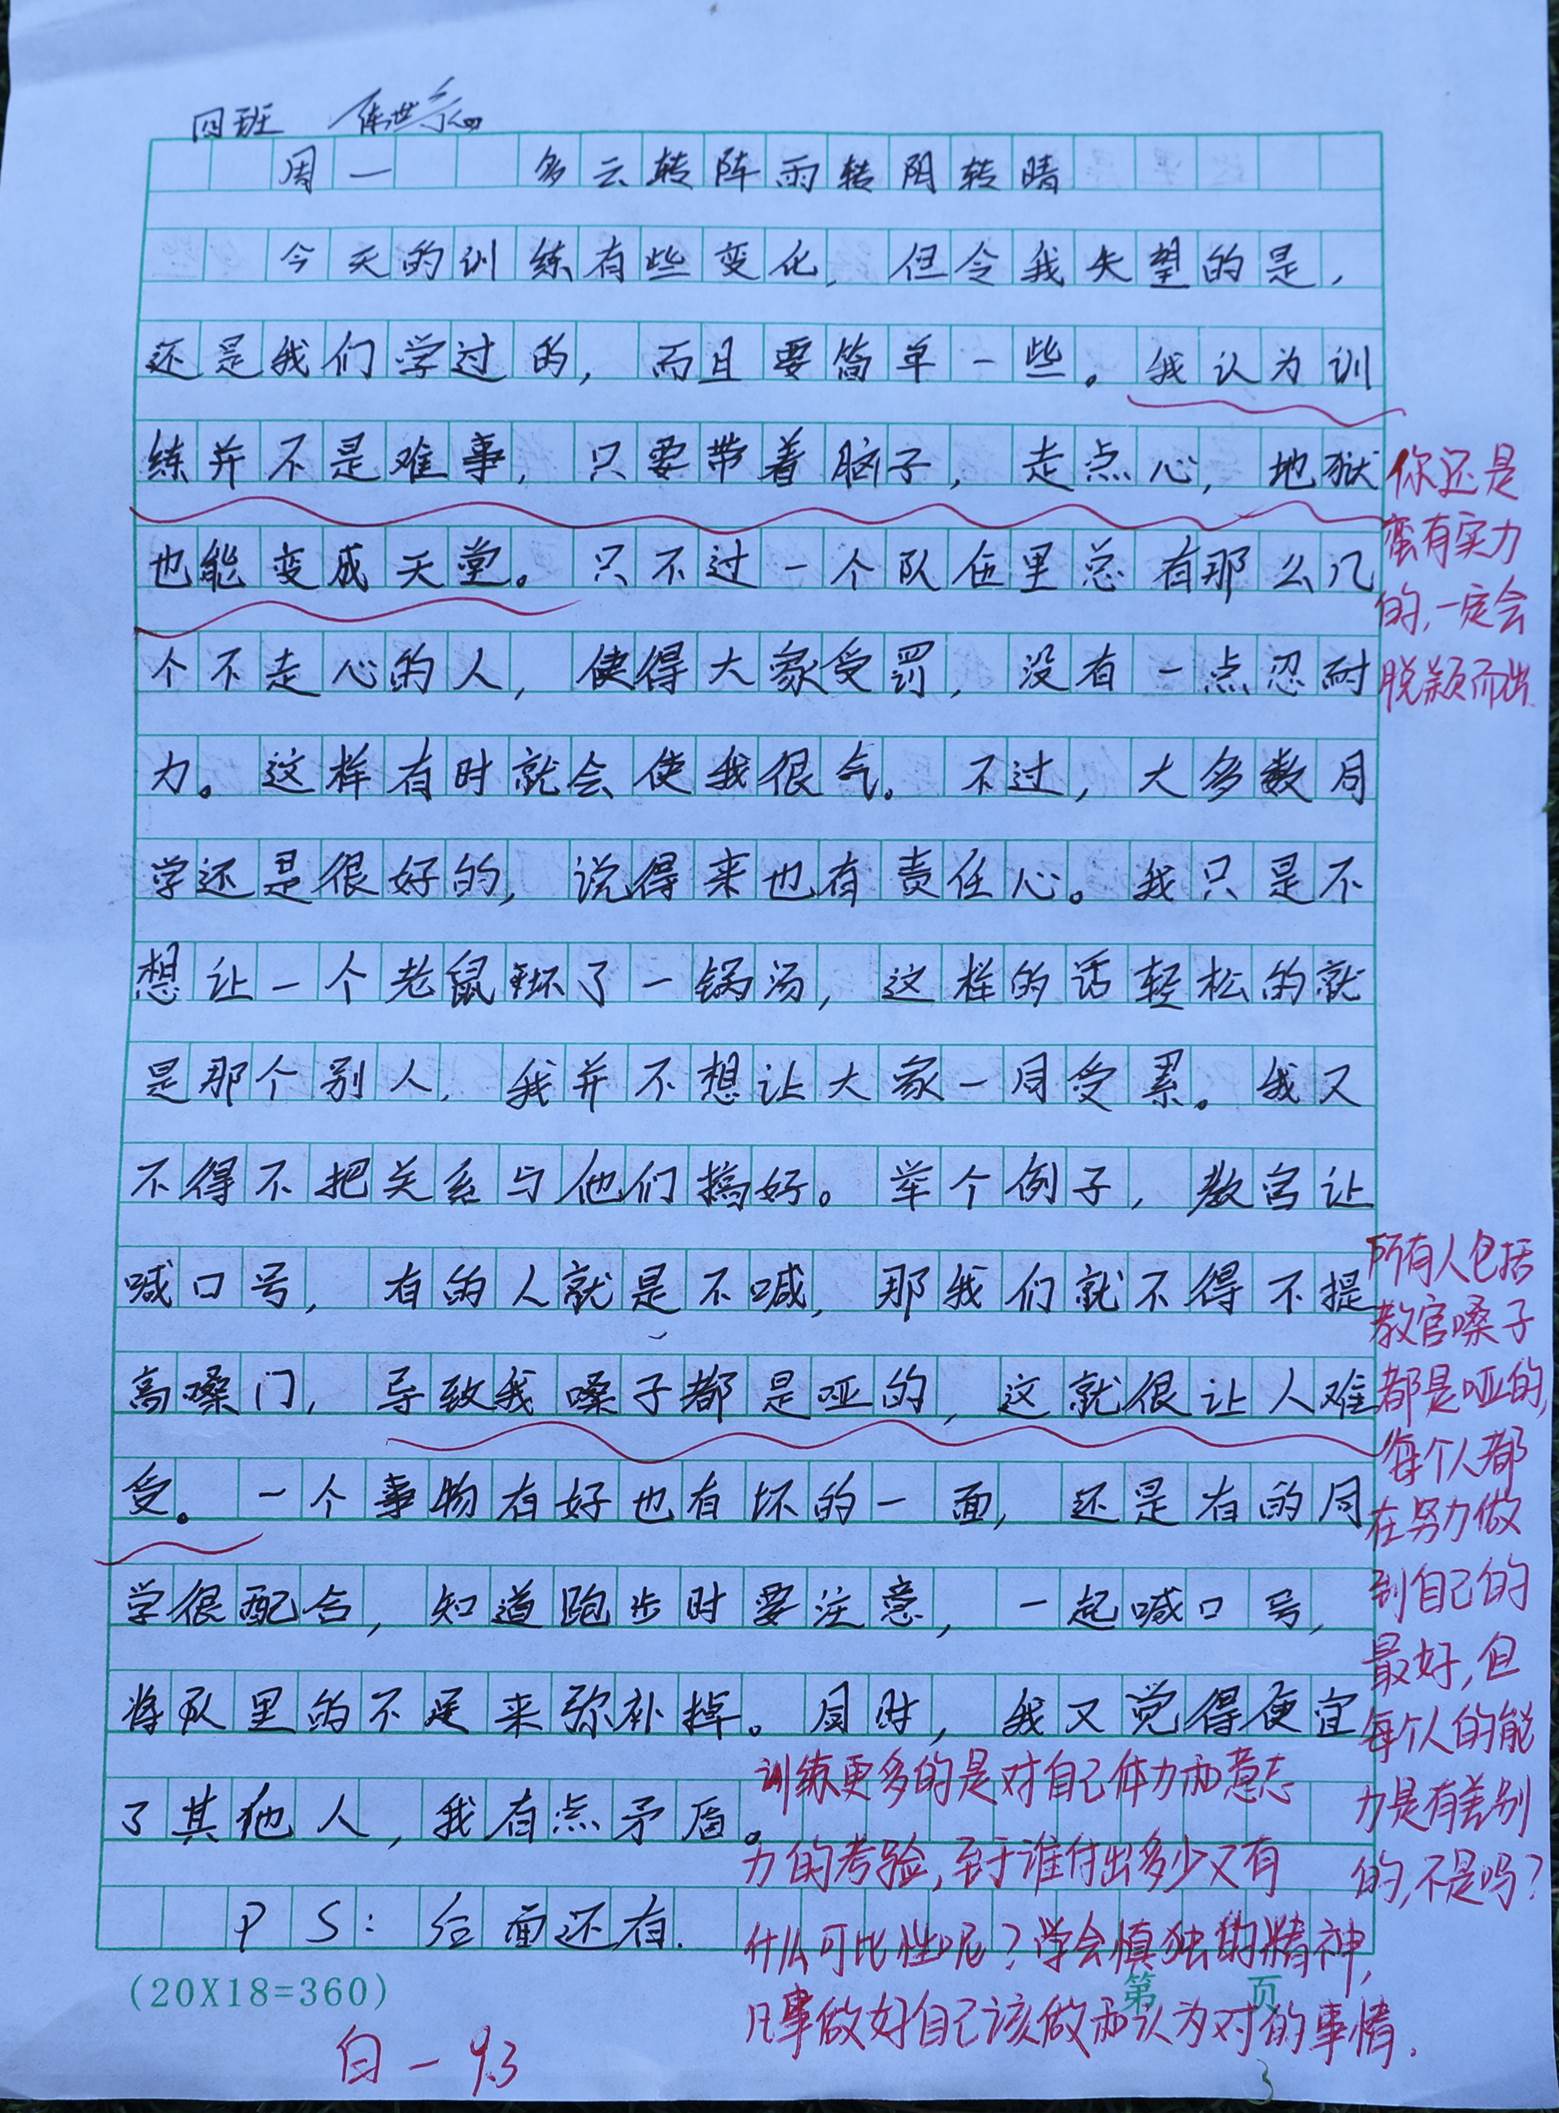 四班
周一 多云转阵雨转阴转晴
今天的训练有些变化，但令我失望的是，
还是我们学过的，而且要简单一些。我认为训
练并不是难事，只要带着脑子，走点心，地狱
也能变成天堂。只不过一个队伍里总有那么几
个不走心的人，使得大家受罚，没有一点忍耐
力。这样有时就会使我很气。不过，大多数同
学还是很好的，说得来也有责任心。我只是不
想让一个老鼠坏了一锅汤，这样的话轻松的就
是那个别人，我并不想让大家一同受累。我又
不得不把关系与他们搞好。举个例子，教官让
喊口号，有的人就是不喊，那我们就不得不提
高嗓门，导致我嗓子都是哑的，这就很让人难
受。一个事物有好也有坏的一面，还是有的同
学很配合，知道跑步时要注意，一起喊口号，
将队里的不足来弥补掉。同时，我又觉得便宜
了其他人，我有点矛盾。
PS：后面还有.
你还是
蛮有实力
的，一定会
脱颖而出.
所有人包括
教官嗓子
都是哑的，
每个人都
在努力做
到自己的
最好，但
每个人的能
力是有差别
的，不是吗？
训练更多的是对自己体力和意志
力的考验，至于谁付出多少又有
什么可比性呢？学会慎独的精神，
凡事做好自己该做而认为对的事情.
(20X18=360)
第 页
白一 9.3
3